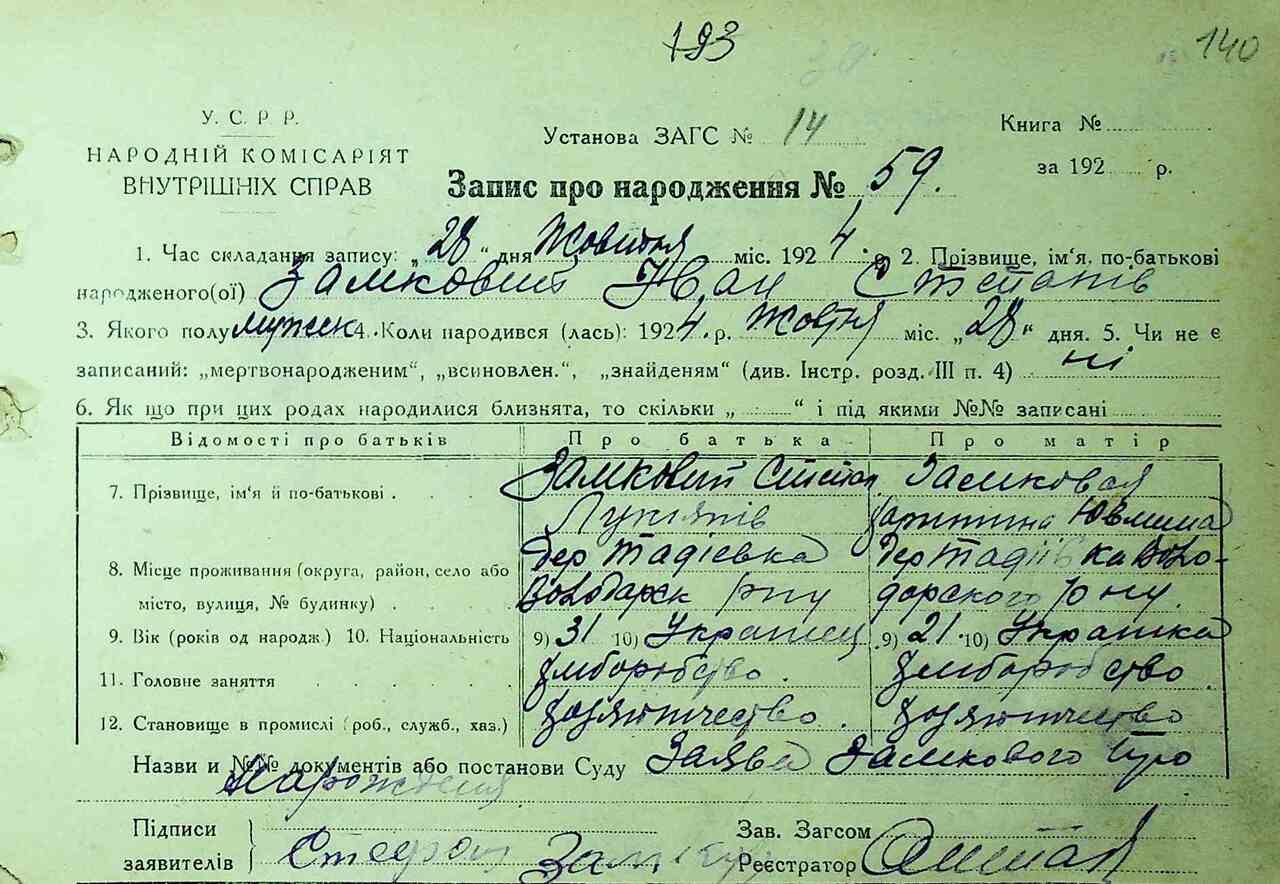 193
140
У. С. Р Р.
НАРОДНІЙ КОМІСАРІЯТ
ВНУТРІШНІХ СПРАВ
Установа ЗАГС № 14
Книга №
за 192 р.
Запис про народження № 59.
1. Час складання запису: „28“ дня Жовтня міс. 1924 р. 2. Прізвище, ім'я, по-батькові
народженого(ої) Замковий Иван Степанів
3. Якого полу мужск 4. Коли народився (лась): 1924. р. жовтня міс. „28“ дня. 5. Чи не є
записаний: „мертвонародженим“, „всиновлен.“, „знайденям“ (див. Інстр. розд. III п. 4) ні
6. Як що при цих родах народилися близнята, то скільки „ “ і під якими №№ записані
Відомості про батьків Про батька Про матір
7. Прізвище, ім'я й по-батькові . Замковий Степан Замковая
Лукянів
8. Місце проживання (округа, район, село або дер Тадіевка дер Тадіївка Воло-
місто, вулиця, № будинку) . Володарск р/ну дарского р/ону.
9. Вік (років од народж.) 10. Національність 9) 31 10) Украінец 9) 21. 10) Украінка
11. Головне заняття хліборобство . хліборобство .
12. Становище в промислі (роб., служб., хаз.) хозяінчество . хозяінчество
Назви и №№ документів або постанови Суду Заява Замкового про
Народження
Підписи
заявителів
Степан
Зав. Загсом
Реєстратор